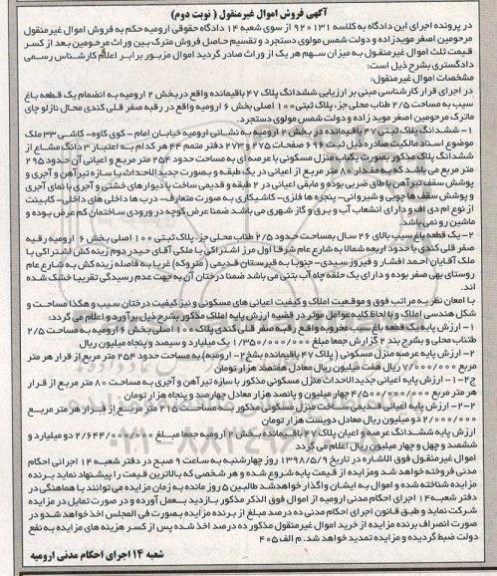 آگهی فروش اموال غیرمنقول ( نوبت دوم )
در پرونده اجرای این دادگاه به کلاسه ۹۲۰۱۳۱ از سوی شعبه ۱۴ دادگاه حقوقی ارومیه حکم به فروش اموال غیرمنقول
مرحومین اصغر مویدزاده و دولت شمس مولوی دستجرد و تقسیم حاصل فروش مترک بین وراث مرحومین بعد از کسر
قیمت ثلث اموال غیرمنقول به میزان سهم هر یک از وراث صادر گردید اموال مزبور برابر اعلام کارشناس رسمی
دادگستری بشرح ذیل است:
مشخصات اموال غیرمنقول:
در اجرای قرار کارشناسی مبنی بر ارزیابی ششدانگ پلاک ۴۷ باقیمانده واقع دربخش ۲ ارومیه به انضمام یک قطعه باغ
سیب به مساحت ۲/۵ طناب محلی جزء پلاک ثبتی۱۰۰ اصلی بخش ۶ ارومیه واقع در رقبه صفر قلی کندی محال نازلو چای
ماترک مرحومین اصغر موید زاده و دولت شمس مولوی دستجرد.
۱- ششدانگ پلاک ثبتی ۴۷ باقیمانده در بخش ۲ ارومیه به نشانی ارومیه خیابان امام - کوی کاوه- کاشی ۳۳ ملک
موضوع اسناد مالکیت صادره ذیل ثبت ۶۹۶ صفحات ۲۷۵ و ۲۷۳ دفتر متمم ۴۴ هر کدام به اعتبار ۳ دانگ مشاع از
ششدانگ پلاک مذکور بصورت یکباب منزل مسکونی با عرصه ای به مساحت حدود ۲۵۴ متر مربع و اعیانی آن حدود ۲۹۵
متر مربع می باشد که به مقدار ۸۰ متر مربع از اعیانی در یک طبقه و بصورت جدید الاحداث با سازه تیرآهن و آجری و
پوشش سقف تیرآهن با طاق ضربی بوده و مابقی اعیانی در ۲ طبقه و قدیمی ساخت با دیوار های خشتی و آجری با نمای آجری
و پوشش سقف ها چوبی و شیروانی- پنجره ها فلزی- کاشیکاری به صورت متعارف- درب ها داخلی های داخلی- کابینت
از نوع ام دی اف و دارای انشعاب آب و برق و گاز شهری می باشد ضمنا عرض کوچه در ورودی ساختمان کم عرض بوده و
ماشین رو نمی باشد.
۲- یک قطعه باغ سیب بالای ۲۶ سال بمساحت حدود ۲/۵ طناب محلی جزء پلاک ثبتی ۱۰۰ اصلی بخش ۶ ارومیه رقبه
صفر قلی کندی با حدود اربعه شمالا به شارع عام شرقا اول مرز اشتراکی با ملکی آقای حیدر دوم زینه کش اشتراکی با
ملک آقایان احمد افشار و فیروز سیدی- جنوبا به قبرستان قدیمی ( متروکه) غربا به فاصله زینه کش به شارع عام
روستای بهی صفر بوده و دارای یک حلقه چاه آب بتنی می باشد ضمنا درختان آن به جهت عدم رسیدگی تقریبا خشک شده
اند.
با امعان نظر به مراتب فوق و موقعیت املاک و کیفیت اعیانی های مسکونی و نیز کیفیت درختان سیب و هکذا مساحت و
شکل هندسی املاک و با لحاظ کلیه عوامل موثر در قضیه ارزش پایه املاک مذکور بشرح ذیل برآورد و اعلام می گردد:
۱- ارزش پایه یک قطعه باغ سیب مخروبه واقع رقبه صفر قلی کندی پلاک ۱۰۰ اصلی بخش ۶ ارومیه به مساحت ۲/۵
طناب محلی و بشرح بند ۲ گزارش جمعا مبلغ ۱/۳۵۰/۰۰۰/۰۰۰ یک میلیارد و سیصد و پنجاه میلیون ریال
۲- ارزش پایه عرصه منزل مسکونی ( پلاک ۴۷ باقیمانده بخش۲- ارومیه) به مساحت حدود ۲۵۴ متر مربع از قرار هر متر
مربع ۷/۰۰۰/۰۰۰ ریال هفت میلیون ریال معادل هفتصد هزار تومان
ج۲-۱- ارزش پایه اعیانی جدید الاحداث منزل مسکونی مذکور با سازه تیر آهن و آجری به مساحت ۸۰ متر مربع از قرار
هر متر مربع ۴/۵۰۰/۰۰۰ چهار میلیون و پانصد هزار ریال معادل چهارصد و پنجاه هزار تومان
۲-۲- ارزش پایه اعیانی قدیمی ساخت منزل مسکونی مذکور به مساحت ۲۱۵ متر مربع از قرار هر متر مربع
۲/۰۰۰/۰۰۰ دو میلیون ریال معادل دویست هزار تومان
ارزش پایه ششدانگ عرصه و اعیان پلاک ۴۷ باقیمانده بخش ۲ ارومیه جمعا مبلغ ۲/۶۴۴/۰۰۰/۰۰۰ دو میلیارد و
ششصد و چهل و چهار میلیون ریال اعلام می گردد
اموال غیرمنقول فوق الاشاره در تاریخ ۱۳۹۸/۵/۹ روز چهارشنبه به ساعت ۹ صبح در دفتر شعبه ۱۴ اجرای احکام
مدنی فروخته خواهد شد ومزایده از قیمت پایه شروع شده و هر شخصی که بالاترین قیمت را پیشنهاد نماید برنده
مزایده شناخته شده و اموال به ایشان واگذار خواهدشد طالبین ۵ روز مانده به زمان مزایده می توانند با هماهنگی در
دفتر شعبه۱۴ اجرای احکام مدنی ارومیه از اموال فوق الذکر مذکور بازدید بعمل آورده و در صورت تمایل در مزایده
شرکت نماید و طبق قانون اجرای احکام مدنی ده درصد مبلغ از برنده مزایده بصورت فی المجلس اخذ خواهد شدو در
صورت انصراف برنده مزایده از خرید اموال غیرمنقول مذکور ده درصد اخذ شده پس از کسر هزینه های مزایده به نفع
دولت ضبط گردیده و مزایده تمدید خواهد شد. م الف ۴۰۵
شعبه ۱۴ اجرای احکام مدنی ارومیه